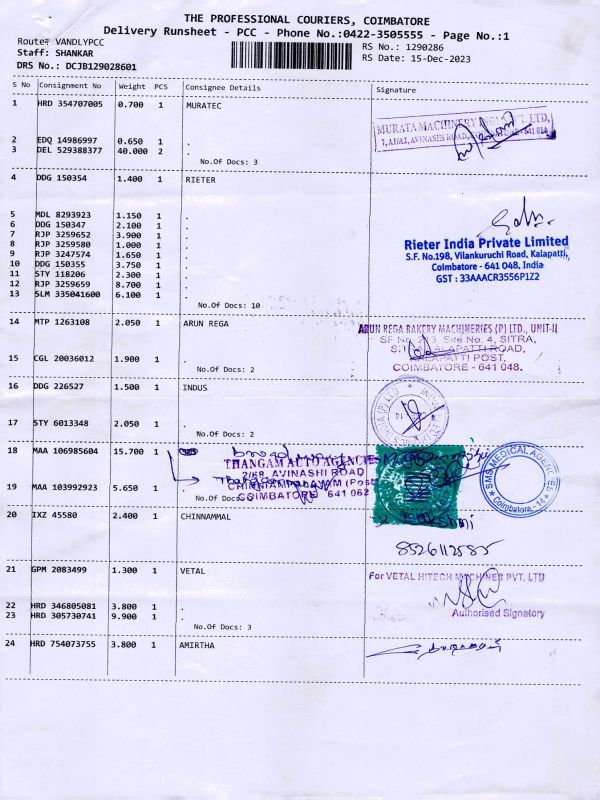 THE PROFESSIONAL COURIERS, COIMBATORE
Delivery Runsheet - PCC - Phone No.:0422-3505555 - Page No.:1
Route: VANDLYPCC
RS No.: 1290286
Staff: SHANKAR
RS Date: 15-Dec-2023
DRS No.: DCJB129028601
S No Consignment No Weight PCS Consignee Details Signature
1 HRD 354707005 0.700 1 MURATEC
MURATA MACHINERY INDIA PVT. LTD,
AVINASHI ROAD,
2 EDQ 14986997 0.650 1 .
3 DEL 529388377 40.000 2 .
No.Of Docs: 3
4 DDG 150354 1.400 1 RIETER
5 MDL 8293923 1.150 1 .
6 DDG 150347 2.100 1 .
7 RJP 3259652 3.900 1 .
8 RJP 3259580 1.000 1 .
9 RJP 3247574 1.650 1 .
10 DDG 150355 3.750 1 .
11 STY 118206 2.300 1 .
12 RJP 3259659 8.700 1 .
13 SLM 335041600 6.100 1 .
No.Of Docs: 10
Rieter India Private Limited
S.F. No.198, Vilankuruchi Road, Kalapatti,
Coimbatore - 641 048, India
GST : 33AAACR3556P1Z2
14 MTP 1263108 2.050 1 ARUN REGA
ARUN REGA BAKERY MACHINERIES (P) LTD., UNIT-II
SF No. 213, Site No. 4, SITRA,
KALAPATTI ROAD,
KALAPATTI POST,
COIMBATORE - 641 048.
15 CGL 20036012 1.900 1 .
No.Of Docs: 2
16 DDG 226527 1.500 1 INDUS
17 STY 6013348 2.050 1 .
No.Of Docs: 2
18 MAA 106985604 15.700 1
THANGAM AUTO AGENCIES
2/68, AVINASHI ROAD
CHINNIAMPALAYAM (Post)
COIMBATORE 641 062
19 MAA 103992923 5.650 1
No.Of Docs
SMS MEDICAL AGENCIES
Coimbatore - 14
20 IXZ 45580 2.400 1 CHINNAMMAL
8526112585
21 GPM 2083499 1.300 1 VETAL
For VETAL HITECH MACHINES PVT. LTD
Authorised Signatory
22 HRD 346805081 3.800 1 .
23 HRD 305730741 9.900 1 .
No.Of Docs: 3
24 HRD 754073755 3.800 1 AMIRTHA